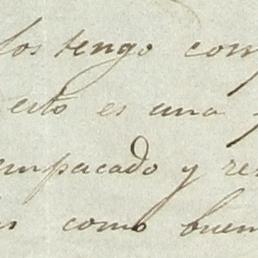 los tengo com
esto es una
empacado y re
como buen